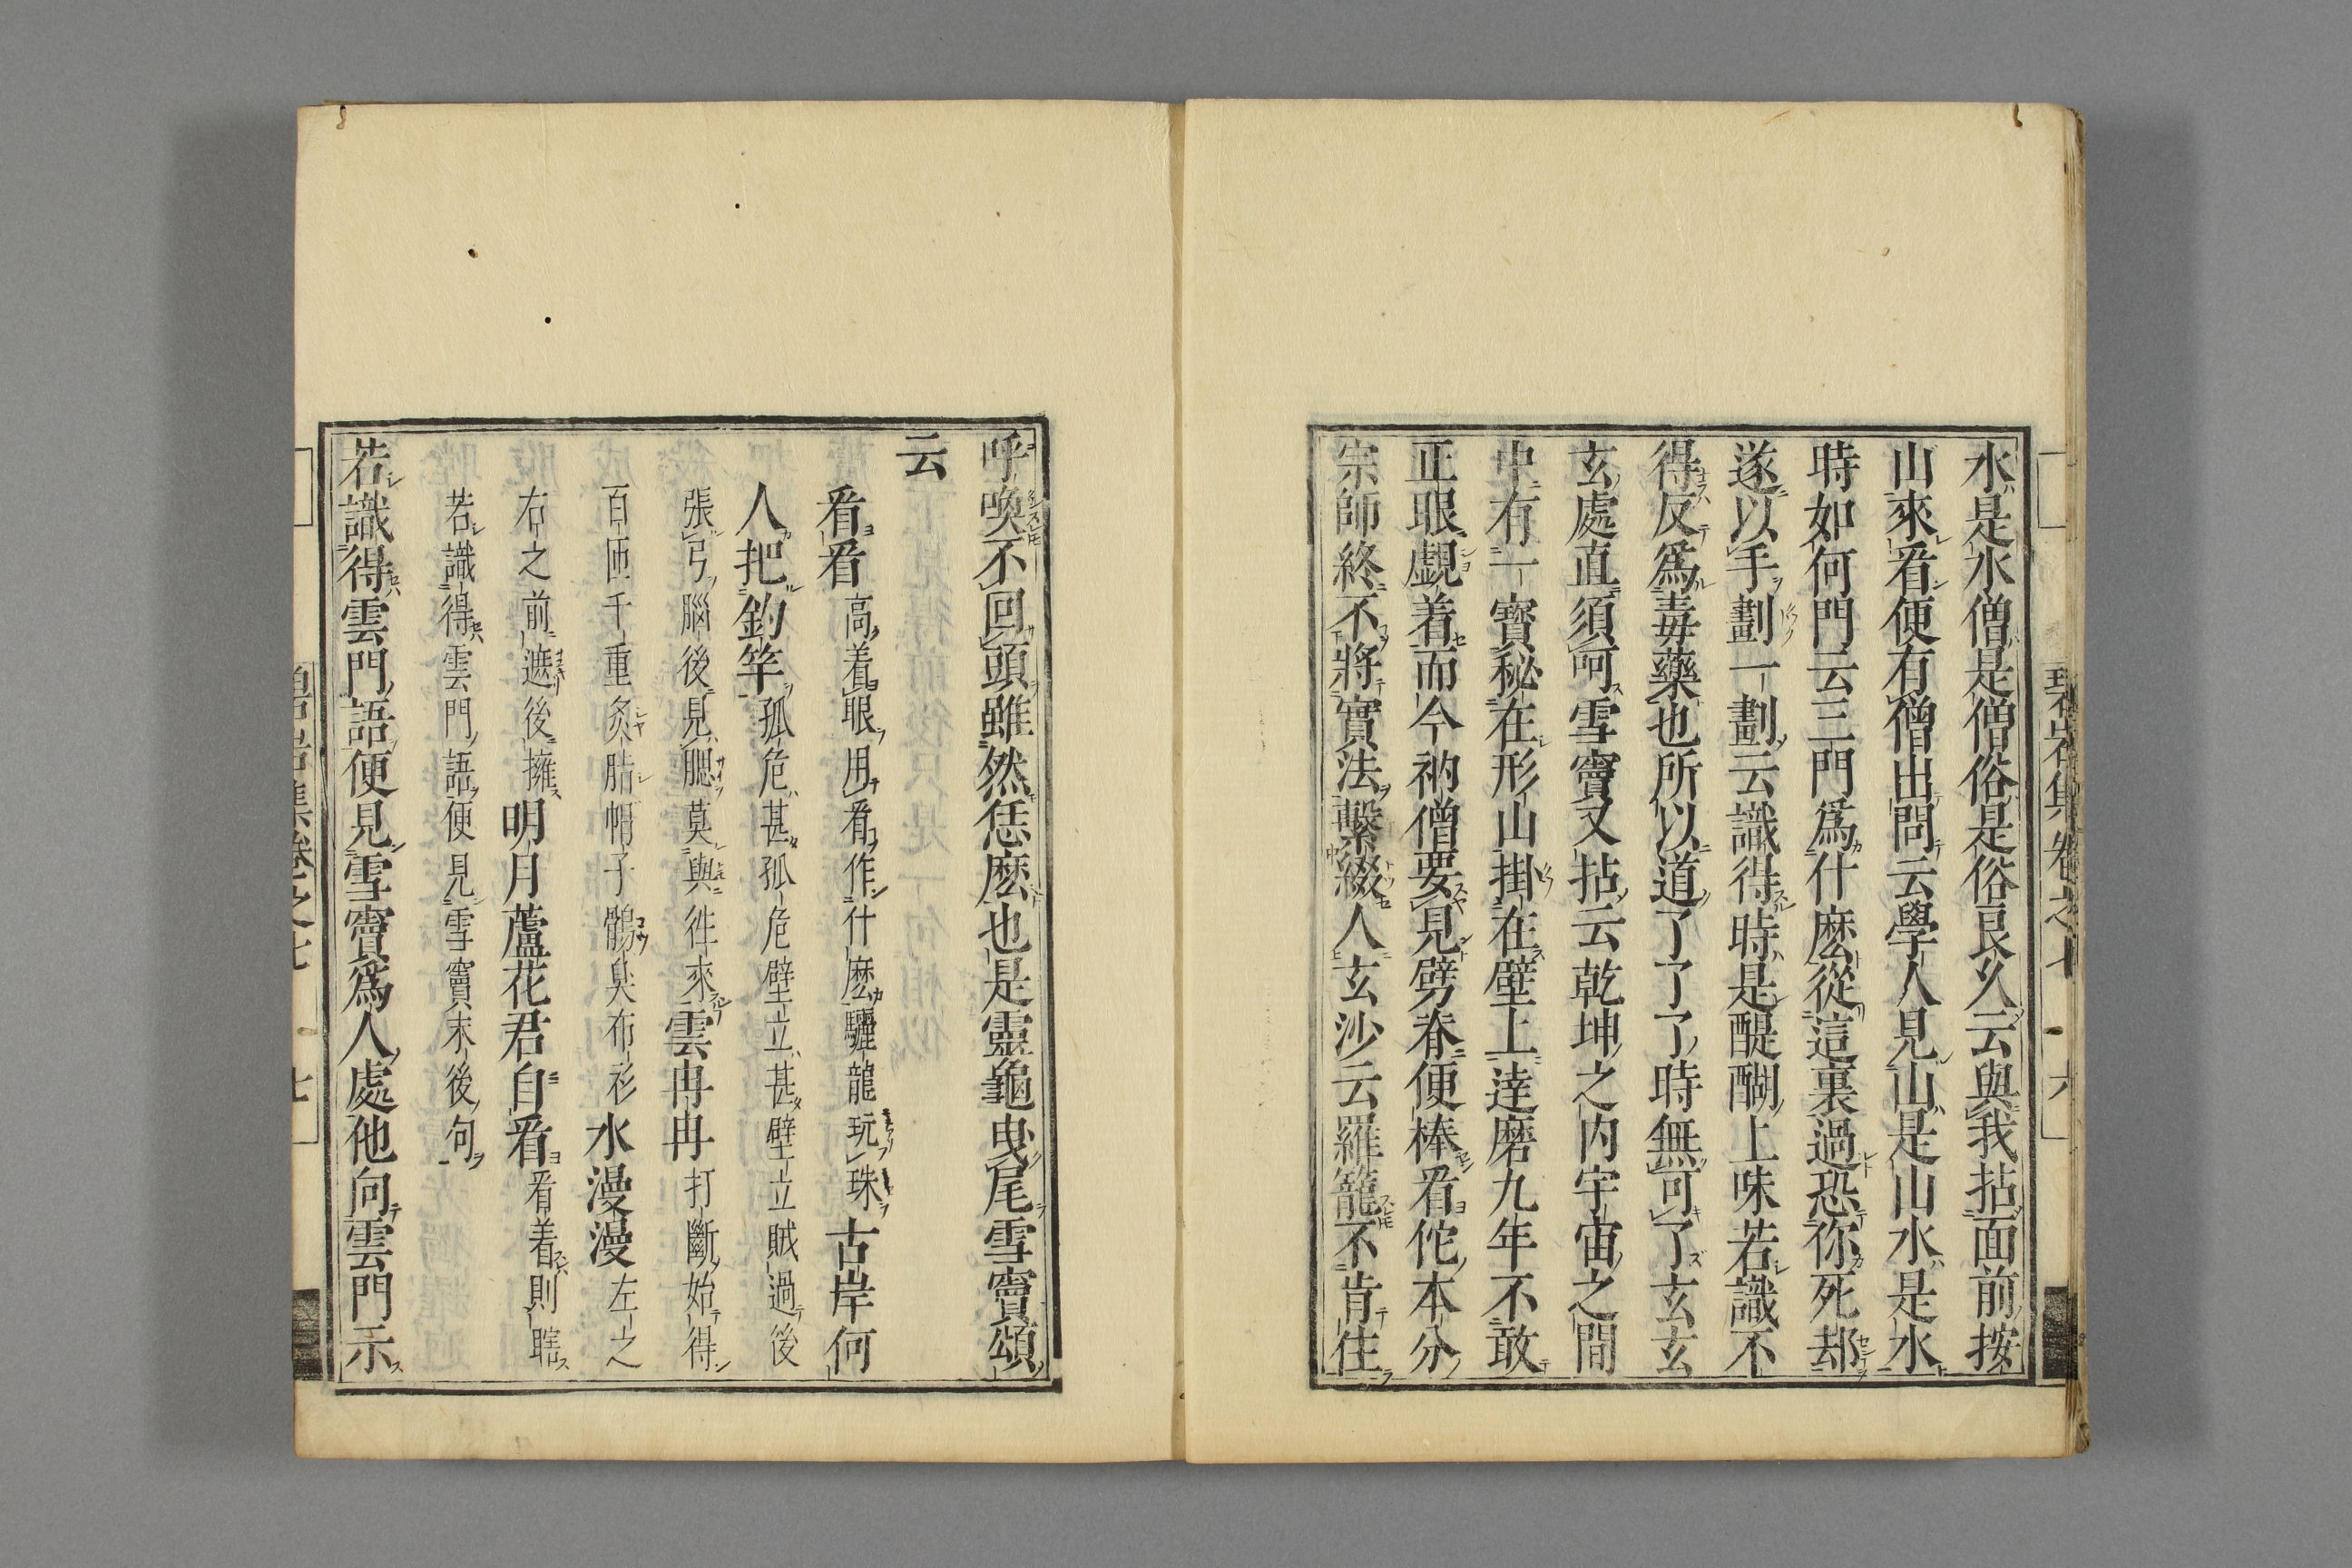 水是水僧是僧俗是俗良久云與我拈面前按
山來看便有僧出問云學人見山是山水是水
時如何門云三門爲什麽從這裏過恐你死却
遂以手劃一劃云識得時是醍醐上味若識不
得反爲毒藥也所以道了了了時無可了玄玄
玄處直須呵雪竇又拈云乾坤之内宇宙之間
中有一寶秘在形山掛在壁上達磨九年不敢
正眼覷着而今衲僧要見劈脊便棒看佗本分
宗師終不將實法繫綴人玄沙云羅籠不肯住
呼喚不回頭雖然恁麽也是靈龜曳尾雪竇頌
云
看看高着眼用看作什麽驪龍玩珠古岸何
人把釣竿孤危甚孤危壁立甚壁立賊過後
張弓腦後見腮莫與徃來雲冉冉打斷始得
百匝千重炙脂帽子鶻臭布衫水漫漫左之
右之前遮後擁明月蘆花君自看看着則瞎
若識得雲門語便見雪竇末後句
若識得雲門語便見雪竇爲人處他向雲門示